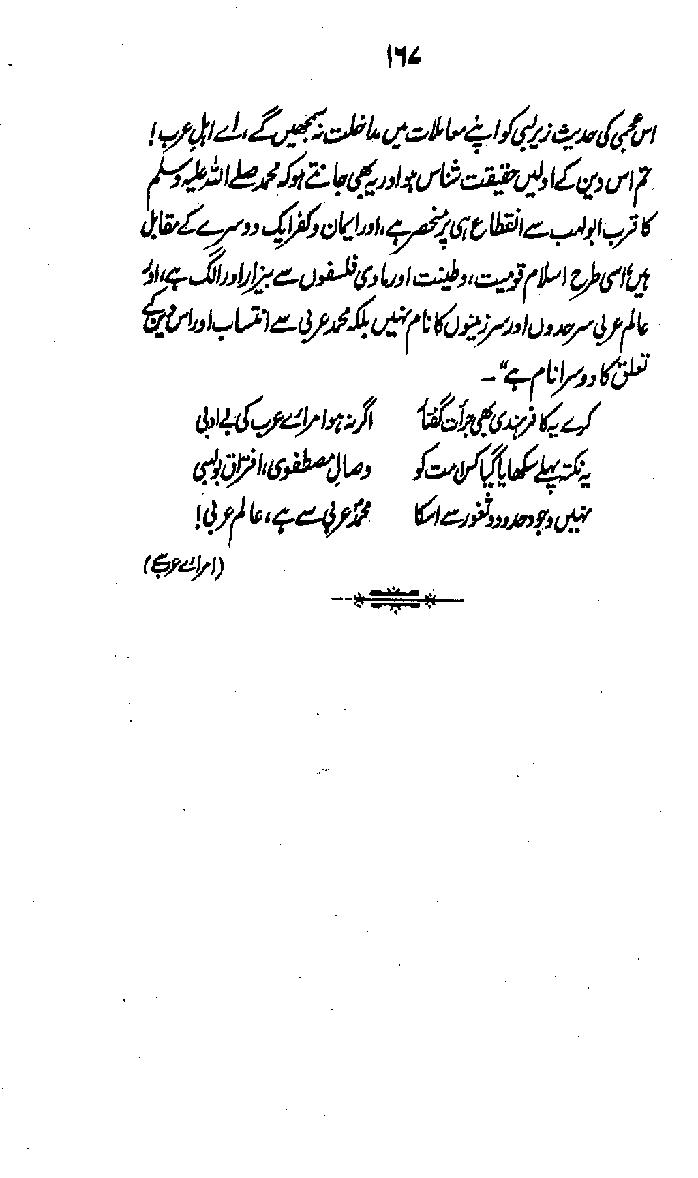 ۱۶۷
اس عجمی کی حدیث زیر لبی کو اپنے معاملات میں مداخلت نہ سمجھیں گے، اے اہل عرب!
تم اس دین کے اولیں حقیقت شناس ہو اور یہ بھی جانتے ہو کہ محمد صلے اللہ علیہ وسلم
کا قرب ابولہب سے انقطاع ہی پر منحصر ہے، اور ایمان و کفر ایک دوسرے کے مقابل
ہیں اسی طرح اسلام قومیت، وطنیت اور مادی فلسفوں سے بیزار اور الگ ہے، اور
عالم عربی سرحدوں اور سرزمینوں کا نام نہیں بلکہ محمد عربی سے انتساب اور اس دین کے
تعلق کا دوسرا نام ہے"۔
کرے یہ کافر ہندی بھی جرأت گفتار اگر نہ ہو امرائے عرب کی بے ادبی
یہ نکتہ پہلے سکھایا گیا کس امت کو وصال مصطفوی، افتراق بولہبی
نہیں وجود حدود و ثغور سے اسکا محمدؐ عربی سے ہے، عالم عربی!
(امرائے عرب)